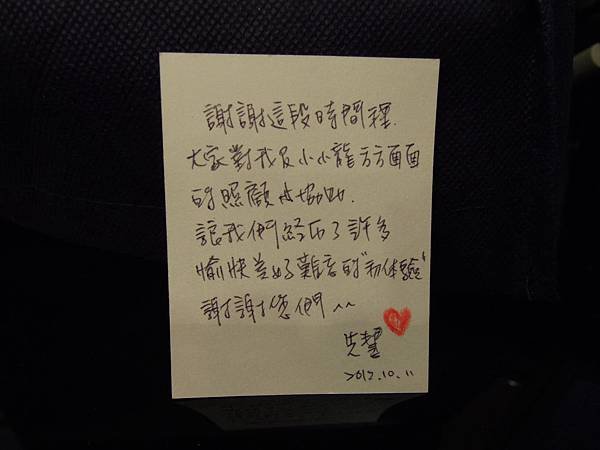 謝謝這段時間裡.
大家對我及小小龍方方面面
的照顧與協助.
讓我們經歷了許多
愉快美好難忘的"初体驗"
謝謝您們^^
2012.10.11